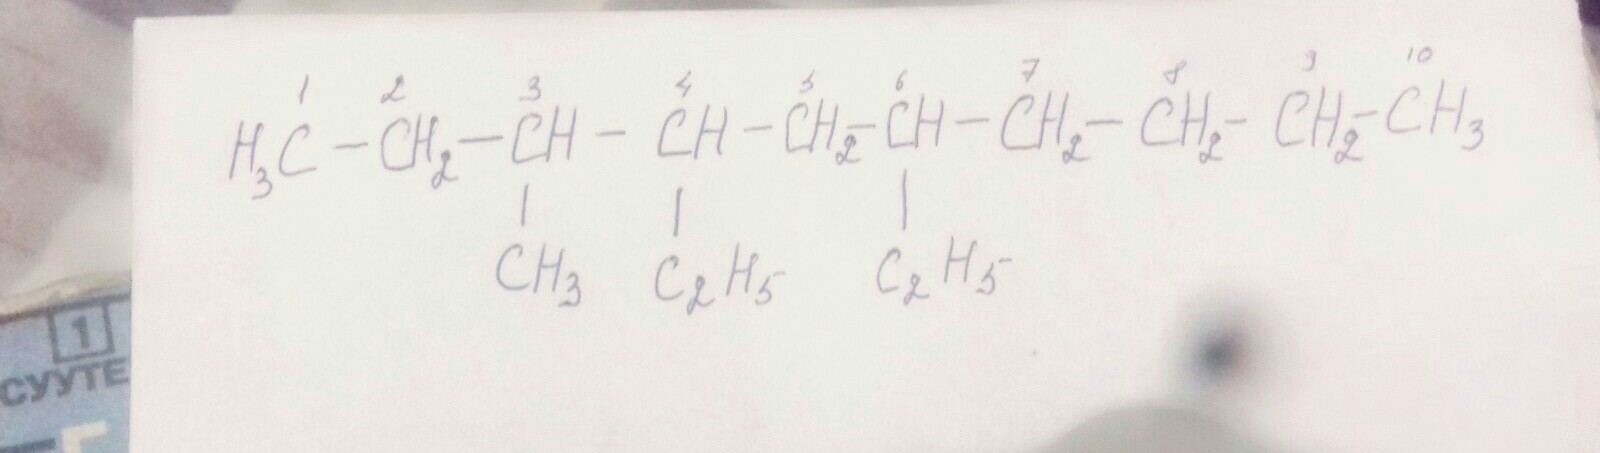 1 2 3 4 5 6 7 8 9 10
H₃C – CH₂ – CH – CH – CH₂ – CH – CH₂ – CH₂ – CH₂ – CH₃
CH₃ C₂H₅ C₂H₅
1
СУУТЕ